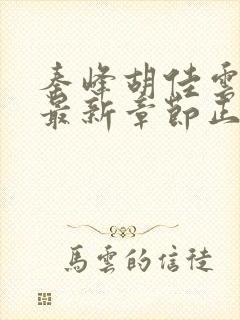 秦峰胡佳雲
最新章節正
馬雲的信徒